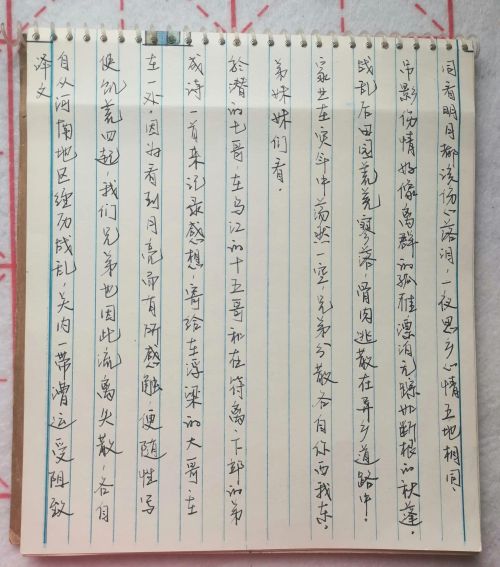 译文
自从河南地区经历战乱，关内一带漕运受阻致
使饥荒四起，我们兄弟也因此流离失散，各自
在一处。因为看到月亮而有所感触，便随性写
成诗一首来记录感想，寄给在浮梁的大哥，在
於潜的七哥，在乌江的十五哥和在符离、下邽的弟
弟妹妹们看。
家业在灾年中荡然一空，兄弟分散各自你西我东。
战乱后田园荒芜寥落，骨肉逃散在异乡道路中。
吊影伤情好像离群的孤雁，漂泊无踪如断根的秋蓬。
同看明月都该伤心落泪，一夜思乡心情五地相同。